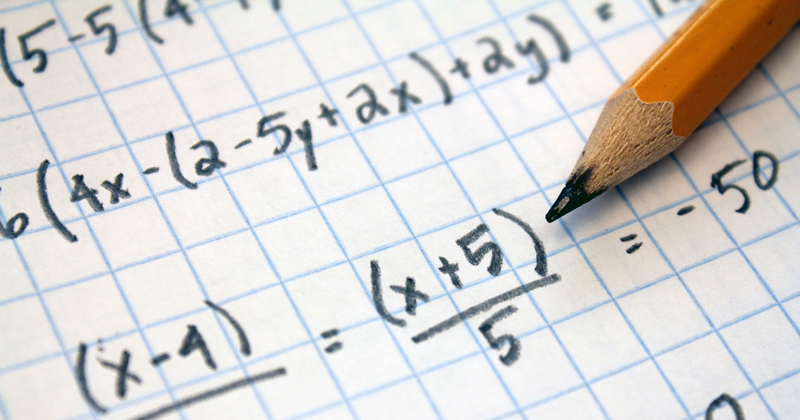 (5-5(4
6(4x-(2-5y+2x)+2y)=
(x-4) = (x+5)/5 = -50